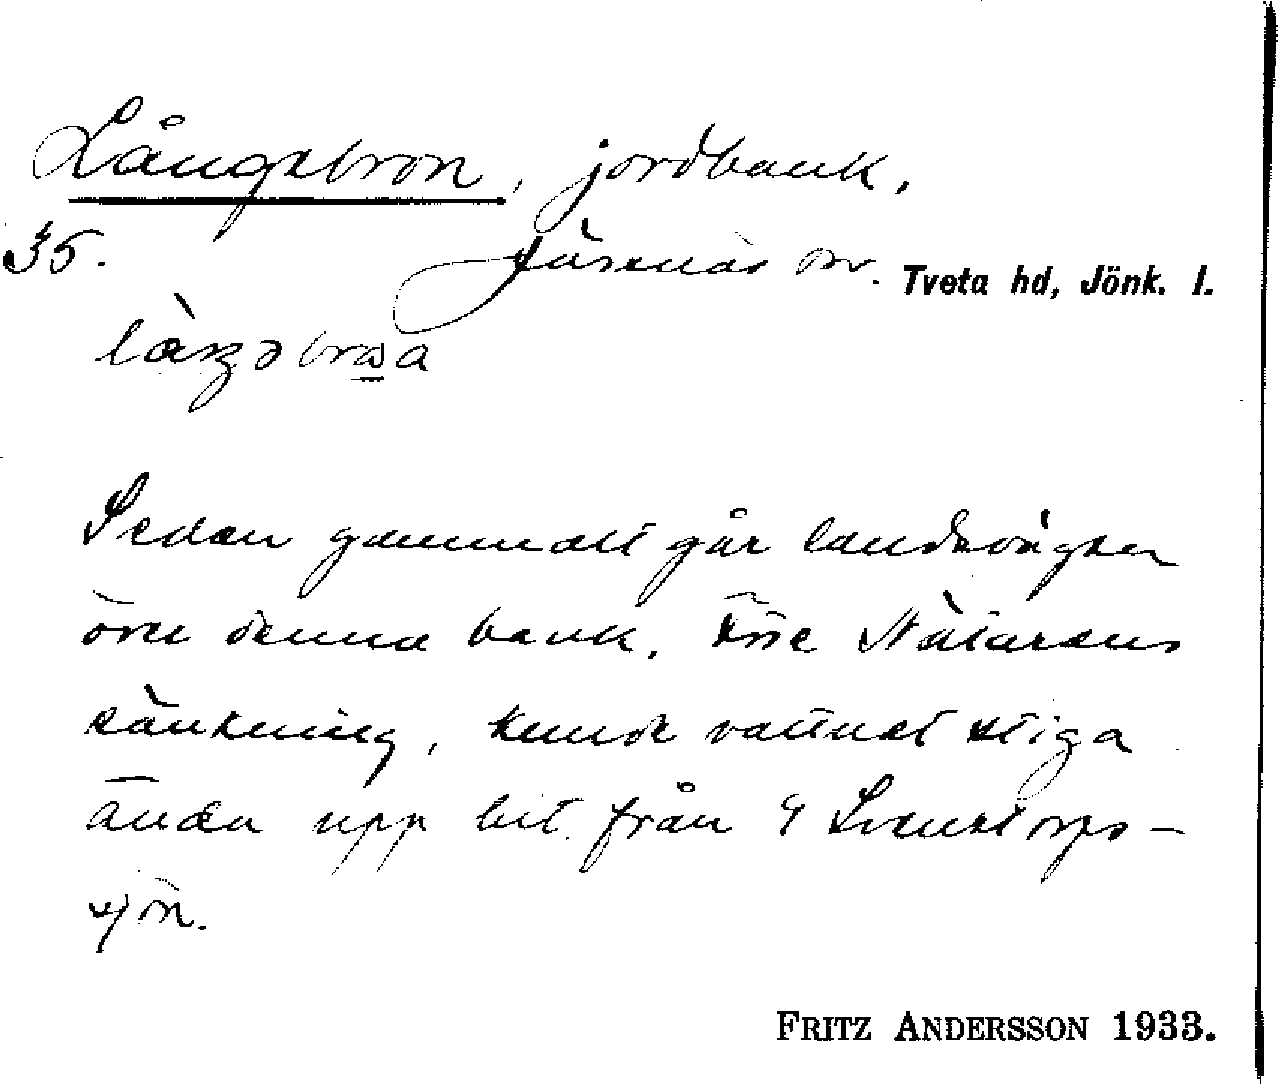 Långebron, jordbank,
35.
Järsnäs sn. Tveta hd, Jönk. l.
Sedan gammalt går landsvägen
över denna bank. Före Nätarens
sänkning, kunde vattnet stiga
ända upp hit från 9 Svenstorps-
sjön.
FRITZ ANDERSSON 1933.